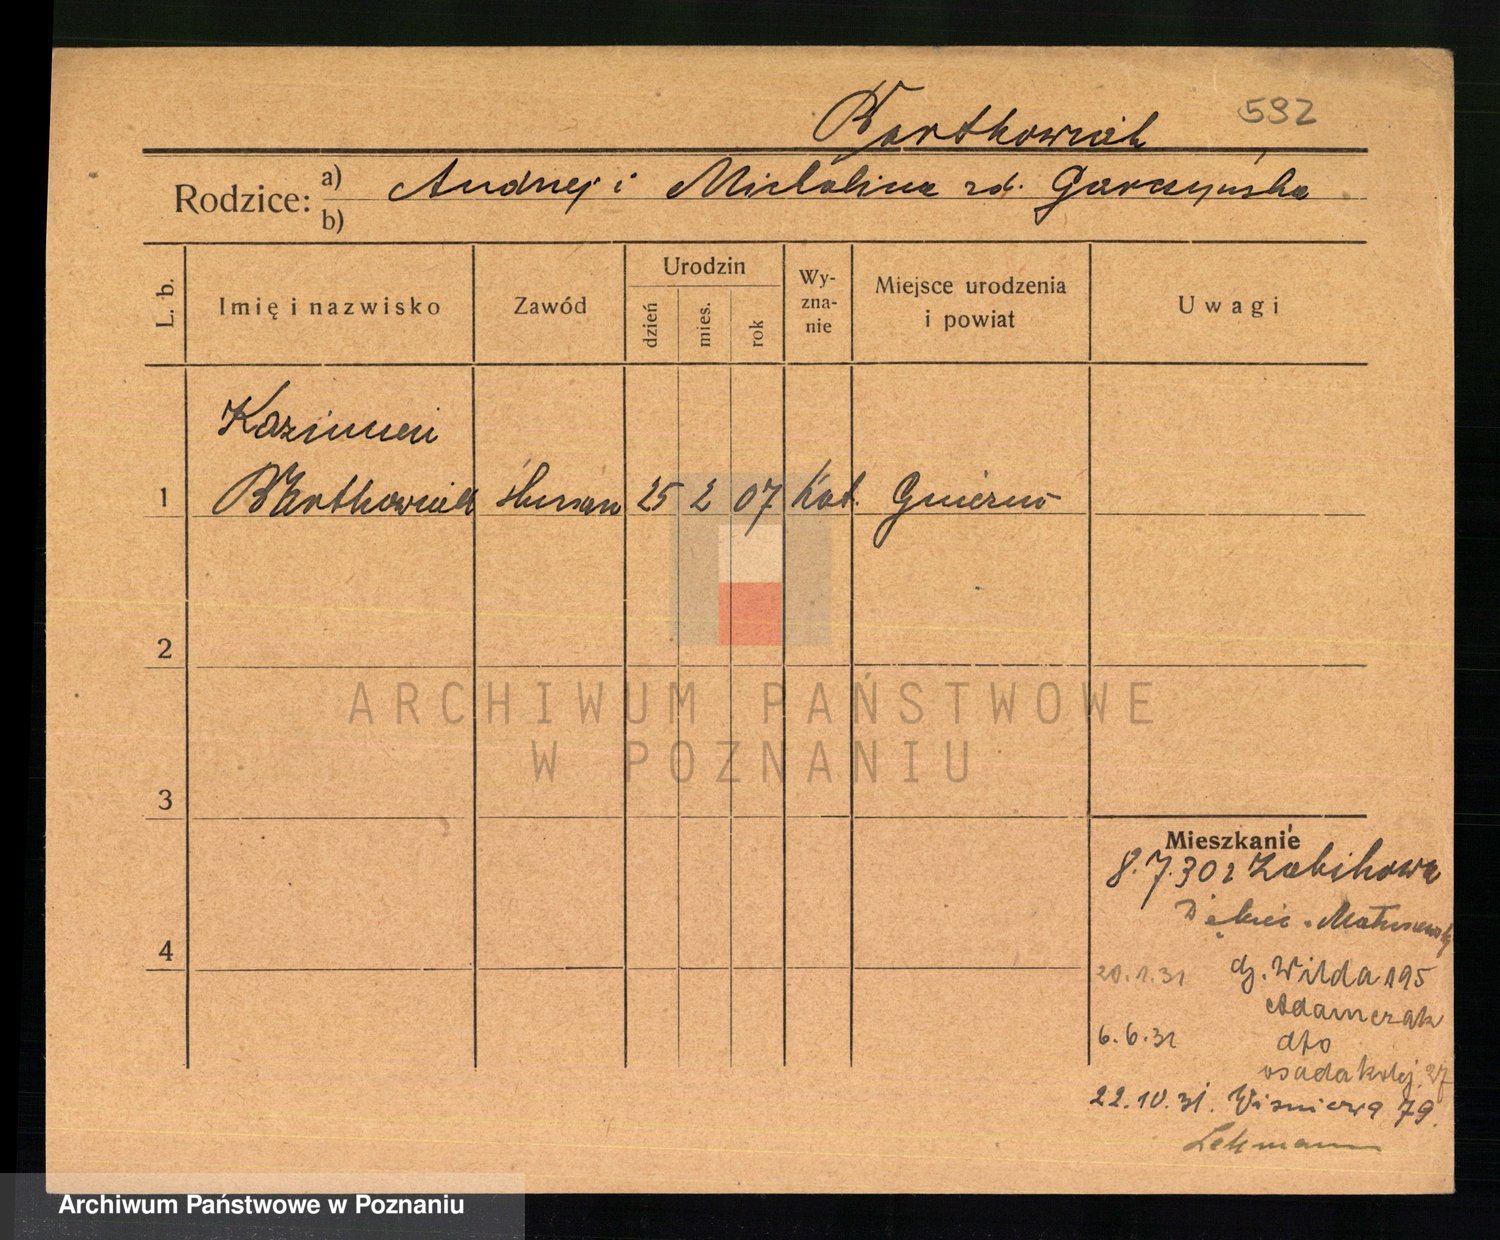 592
Bartkowiak
Rodzice: a) Andrzej i Michalina zd. Garczyńska
b)
L. b.
Imię i nazwisko
Zawód
Urodzin
dzień
mies.
rok
Wy-
zna-
nie
Miejsce urodzenia
i powiat
Uwagi
Kazimierz
1 Bartkowiak ślusarz 25 2 07 kat. Gniezno
2
3
4
ARCHIWUM PAŃSTWOWE
W POZNANIU
Mieszkanie
8.7.30 z Żabikowa
Dębiec
20.1.31 Wilda 195
Adamczak
6.6.31 dto
osada kolej. 27
22.10.31. Wiśniowa 79.
Lehmann
Archiwum Państwowe w Poznaniu